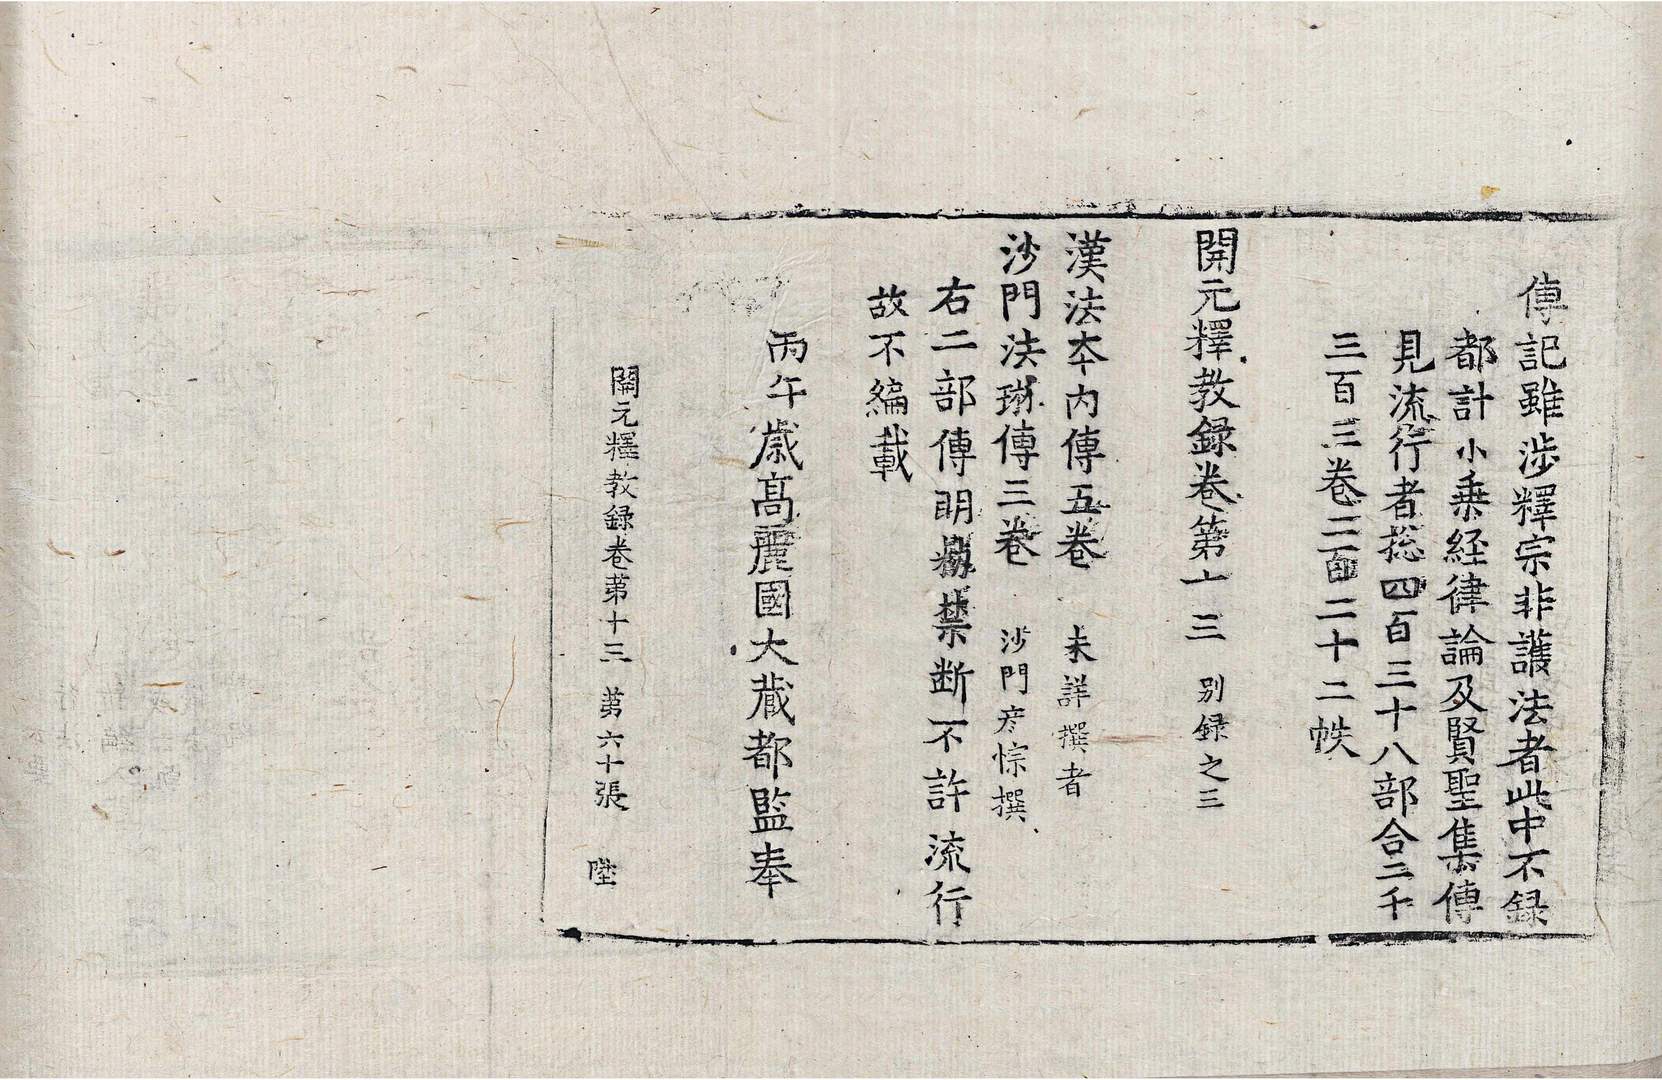 傳記雖涉釋宗非護法者此中不録
都計小乗経律論及賢聖集傳
見流行者捴四百三十八部合二千
三百三卷三百二十二帙
開元釋教録卷第十三 别録之三
漢法夲内傳五卷 未詳撰者
沙門法琳傳三卷 沙門彦悰撰
右二部傳明勑禁断不許流行
故不編載
丙午歳高麗國大藏都監奉
開元釋教録卷苐十三 苐六十張 陞